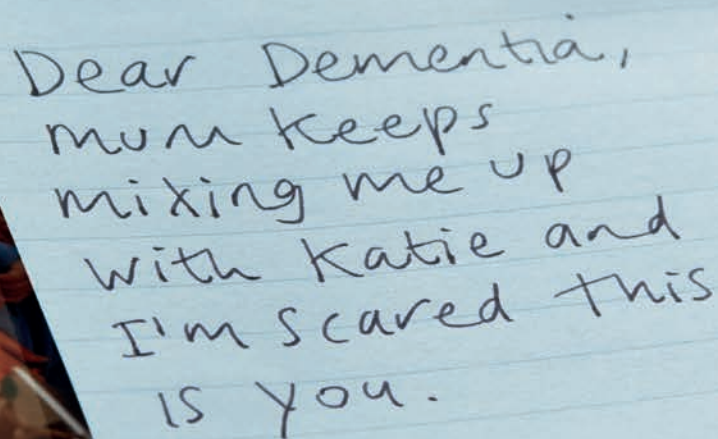 Dear Dementia,
mum keeps
mixing me up
with Katie and
I'm scared this
is you.